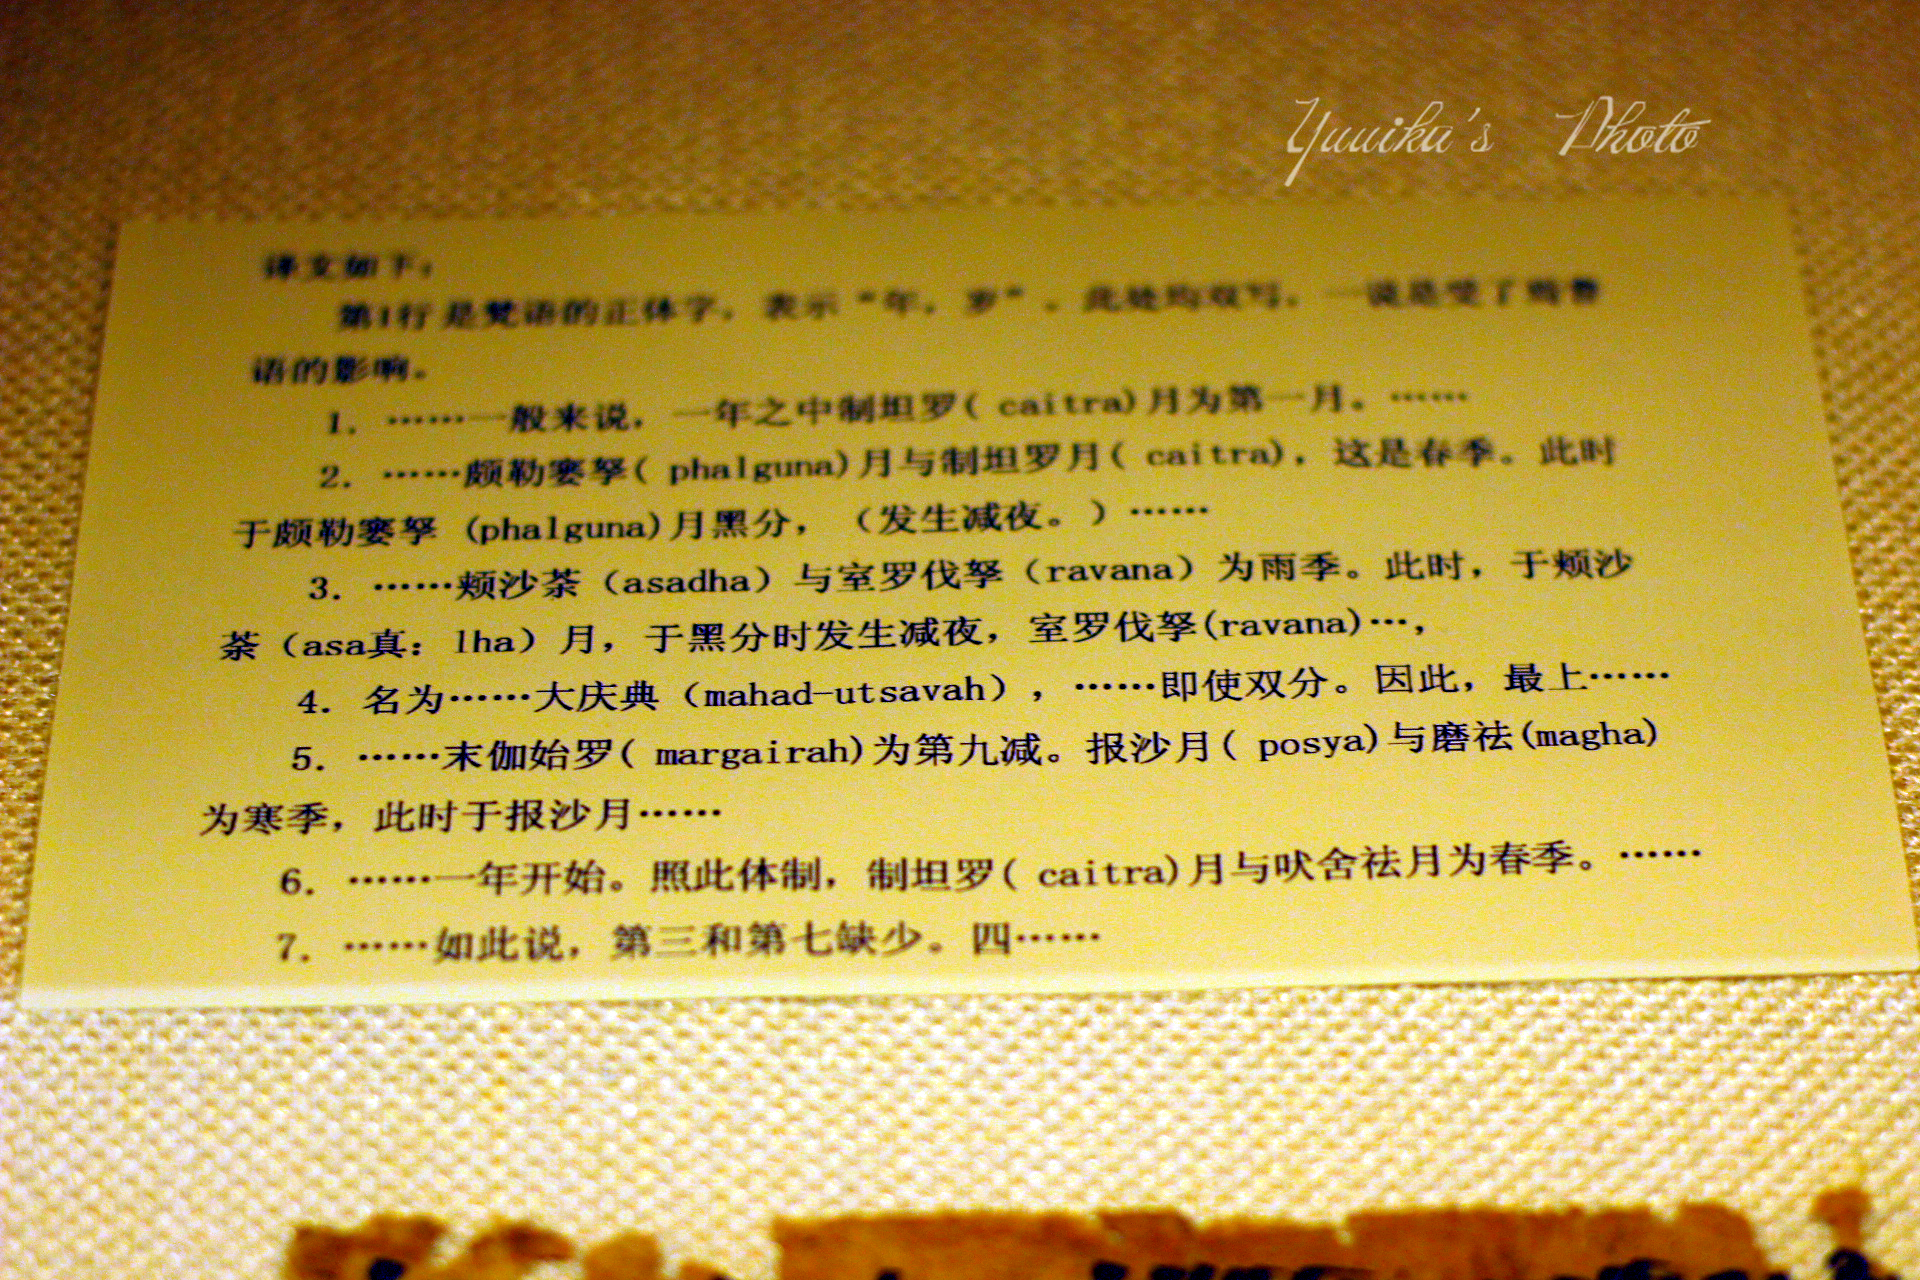 Yuuika's Photo
译文如下：
第1行 是梵语的正体字，表示“年，岁”。此处均双写，一说是受了焉耆
语的影响。
1. ……一般来说，一年之中制坦罗( caitra)月为第一月。……
2. ……颇勒窭拏( phalguna)月与制坦罗月( caitra)，这是春季。此时
于颇勒窭拏 (phalguna)月黑分，（发生减夜。）……
3. ……颊沙荼（asadha）与室罗伐拏（ravana）为雨季。此时，于颊沙
荼（asa真：lha）月，于黑分时发生减夜，室罗伐拏(ravana)…，
4. 名为……大庆典（mahad-utsavah），……即使双分。因此，最上……
5. ……末伽始罗( margairah)为第九减。报沙月( posya)与磨祛(magha)
为寒季，此时于报沙月……
6. ……一年开始。照此体制，制坦罗( caitra)月与吠舍祛月为春季。……
7. ……如此说，第三和第七缺少。四……